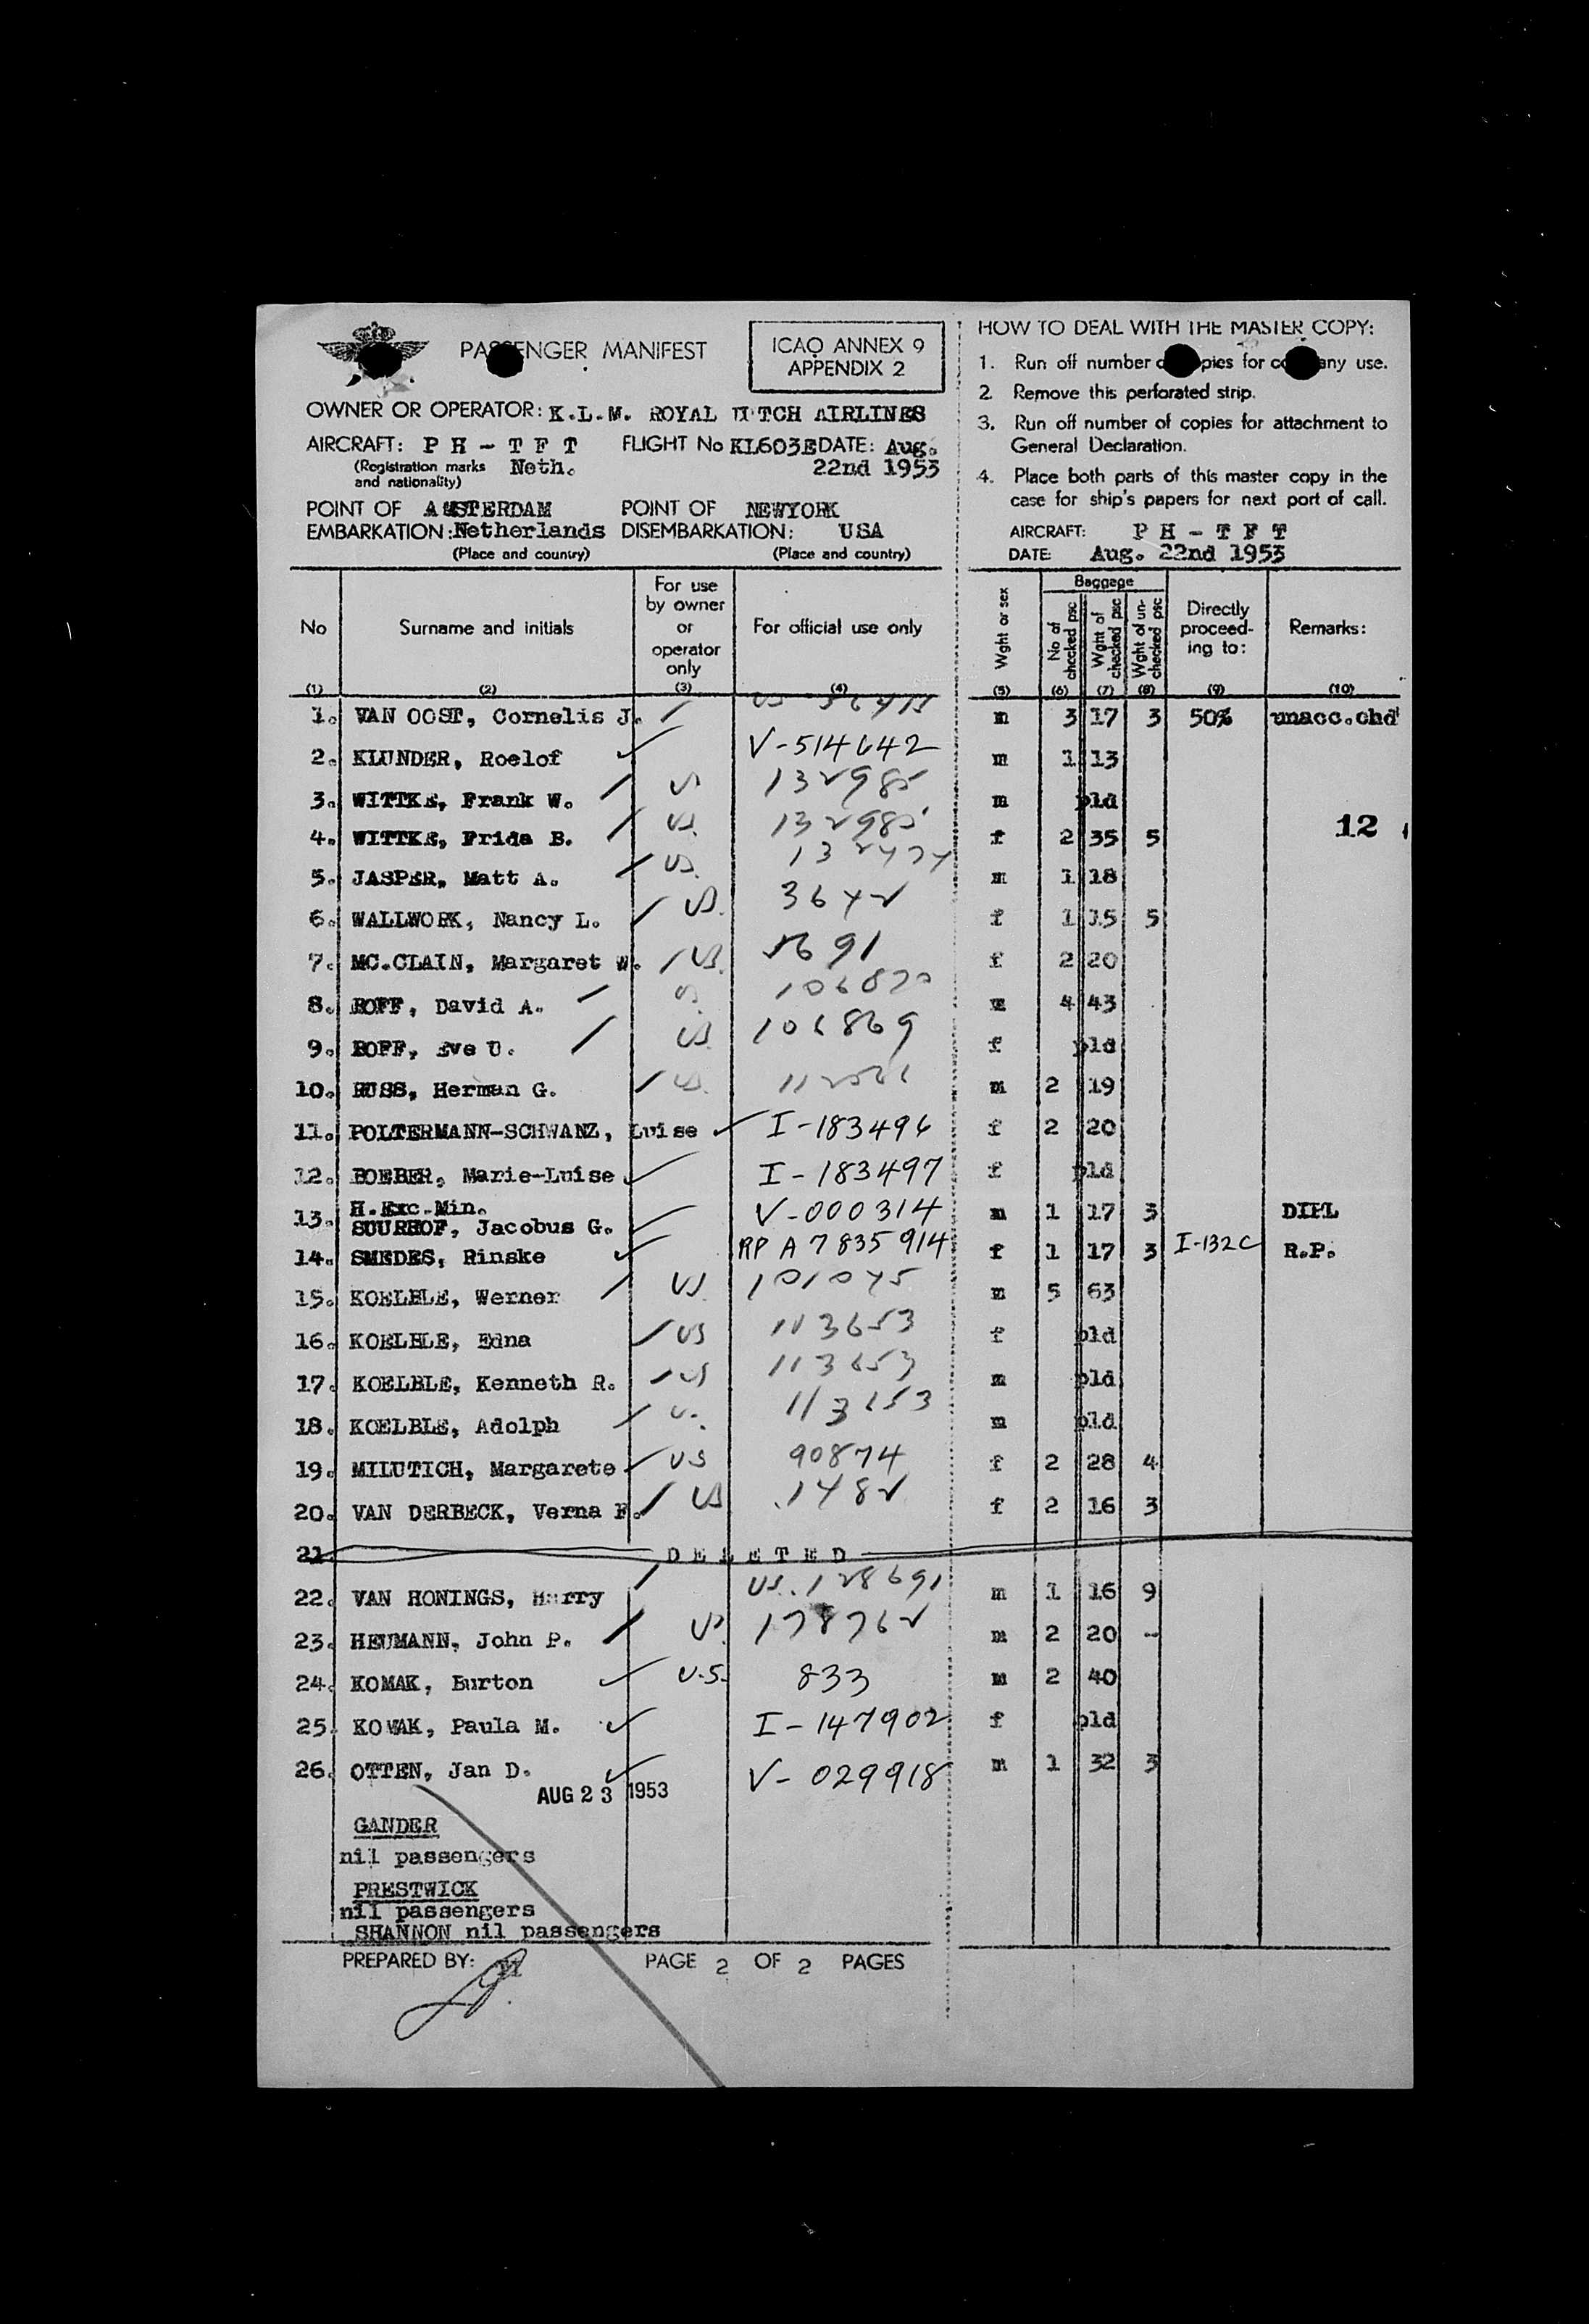 PASSENGER MANIFEST
ICAO ANNEX 9
APPENDIX 2
OWNER OR OPERATOR: K.L.M. ROYAL DUTCH AIRLINES
AIRCRAFT: P H - T F T FLIGHT No KL603E DATE: Aug.
(Registration marks Neth. 22nd 1953
and nationality)
POINT OF AMSTERDAM POINT OF NEWYORK
EMBARKATION: Netherlands DISEMBARKATION: USA
(Place and country) (Place and country)
HOW TO DEAL WITH THE MASTER COPY:
1. Run off number of copies for company use.
2. Remove this perforated strip.
3. Run off number of copies for attachment to
General Declaration.
4. Place both parts of this master copy in the
case for ship's papers for next port of call.
AIRCRAFT: P H - T F T
DATE: Aug. 22nd 1953
No Surname and initials For use by owner or operator only For official use only Wght or sex Baggege No of checked psc Wght of checked psc Wght of un-checked psc Directly proceed-ing to: Remarks:
(1) (2) (3) (4) (5) (6) (7) (8) (9) (10)
1. VAN OOST, Cornelis J. US m 3 17 3 50% unacc.chd
2. KLUNDER, Roelof V-514642 m 1 13
3. WITTKE, Frank W. US 132985 m pld
4. WITTKE, Frida B. US 132985 f 2 35 5 12
5. JASPER, Matt A. US m 1 18
6. WALLWORK, Nancy L. US. 3642 f 1 15 5
7. MC.CLAIN, Margaret W. US f 2 20
8. ROFF, David A. 106870 m 4 43
9. ROFF, Eve U. US 106869 f pld
10. RUSS, Herman G. US m 2 19
11. POLTERMANN-SCHWANZ, Luise I-183496 f 2 20
12. ROEBER, Marie-Luise I-183497 f pld
H.Exc.Min.
13. SUURHOF, Jacobus G. V-000314 m 1 17 3 DIPL
14. SMEDES, Rinske RP A7835914 f 1 17 3 I-132C R.P.
15. KOELBLE, Werner US 101045 m 5 63
16. KOELBLE, Edna US 113653 f pld
17. KOELBLE, Kenneth R. US 113653 m pld
18. KOELBLE, Adolph 113653 m pld
19. MILUTICH, Margarete US 90874 f 2 28 4
20. VAN DERBECK, Verna F. US 1482 f 2 16 3
21. DELETED
22. VAN HONINGS, Harry US. 128691 m 1 16 9
23. HEUMANN, John P. US 178762 m 2 20 --
24. KOMAK, Burton U.S. 833 m 2 40
25. KOMAK, Paula M. I-147902 f pld
26. OTTEN, Jan D. V-029918 m 1 32 3
AUG 23 1953
GANDER
nil passengers
PRESTWICK
nil passengers
SHANNON nil passengers
PREPARED BY: PAGE 2 OF 2 PAGES